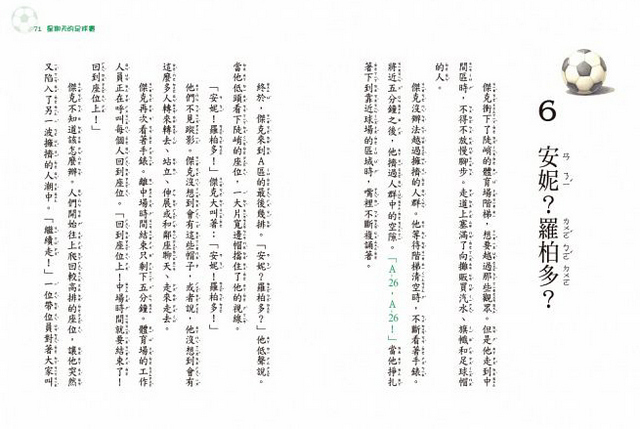 71 星期天的足球賽
6
安妮？羅柏多？
傑克衝下了陡峭的體育場階梯，想要越過那些觀眾。但是他走到中
間區時，不得不放慢腳步。走道上塞滿了向攤販買汽水、旗幟和足球帽
的人。
傑克沒辦法越過擁擠的人群。他等待階梯清空時，不斷看著手錶。
將近五分鐘之後，他擠過人群中的空隙。「A26，A26！」當他掙扎
著下到靠近球場的區域時，嘴裡不斷複誦著。
終於，傑克來到A區的最後幾排。「安妮？羅柏多？」他低聲說。
當他低頭看下陡峭的座位，一大片寬邊帽擋住了他的視線。
「安妮！羅柏多！」傑克大叫著：「安妮！羅柏多！」
他們不見蹤影。傑克沒想到會有這些帽子，或者說，他沒想到會有
這麼多人轉來轉去、站立、伸展或和鄰座聊天、走來走去。
傑克再次看著手錶。離中場時間結束只剩下五分鐘。體育場的工作
人員正在呼叫每個人回到座位。「回到座位上！中場時間就要結束了！
回到座位上！」
傑克不知道該怎麼辦。人們開始往上爬回較高排的座位，讓他突然
又陷入了另一波擁擠的人潮中。「繼續走！」一位帶位員對著大家叫